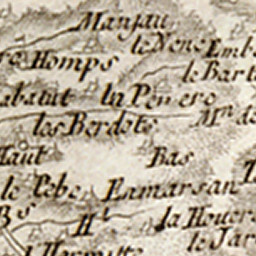 Manjau
le Nene Emb
Homps
le Bart
abatut la Penere
les Berdots Mn de
Haut
Bas
le Pebe Lamarsan
Bs Ht la Houere
le Jar
l Hermitte